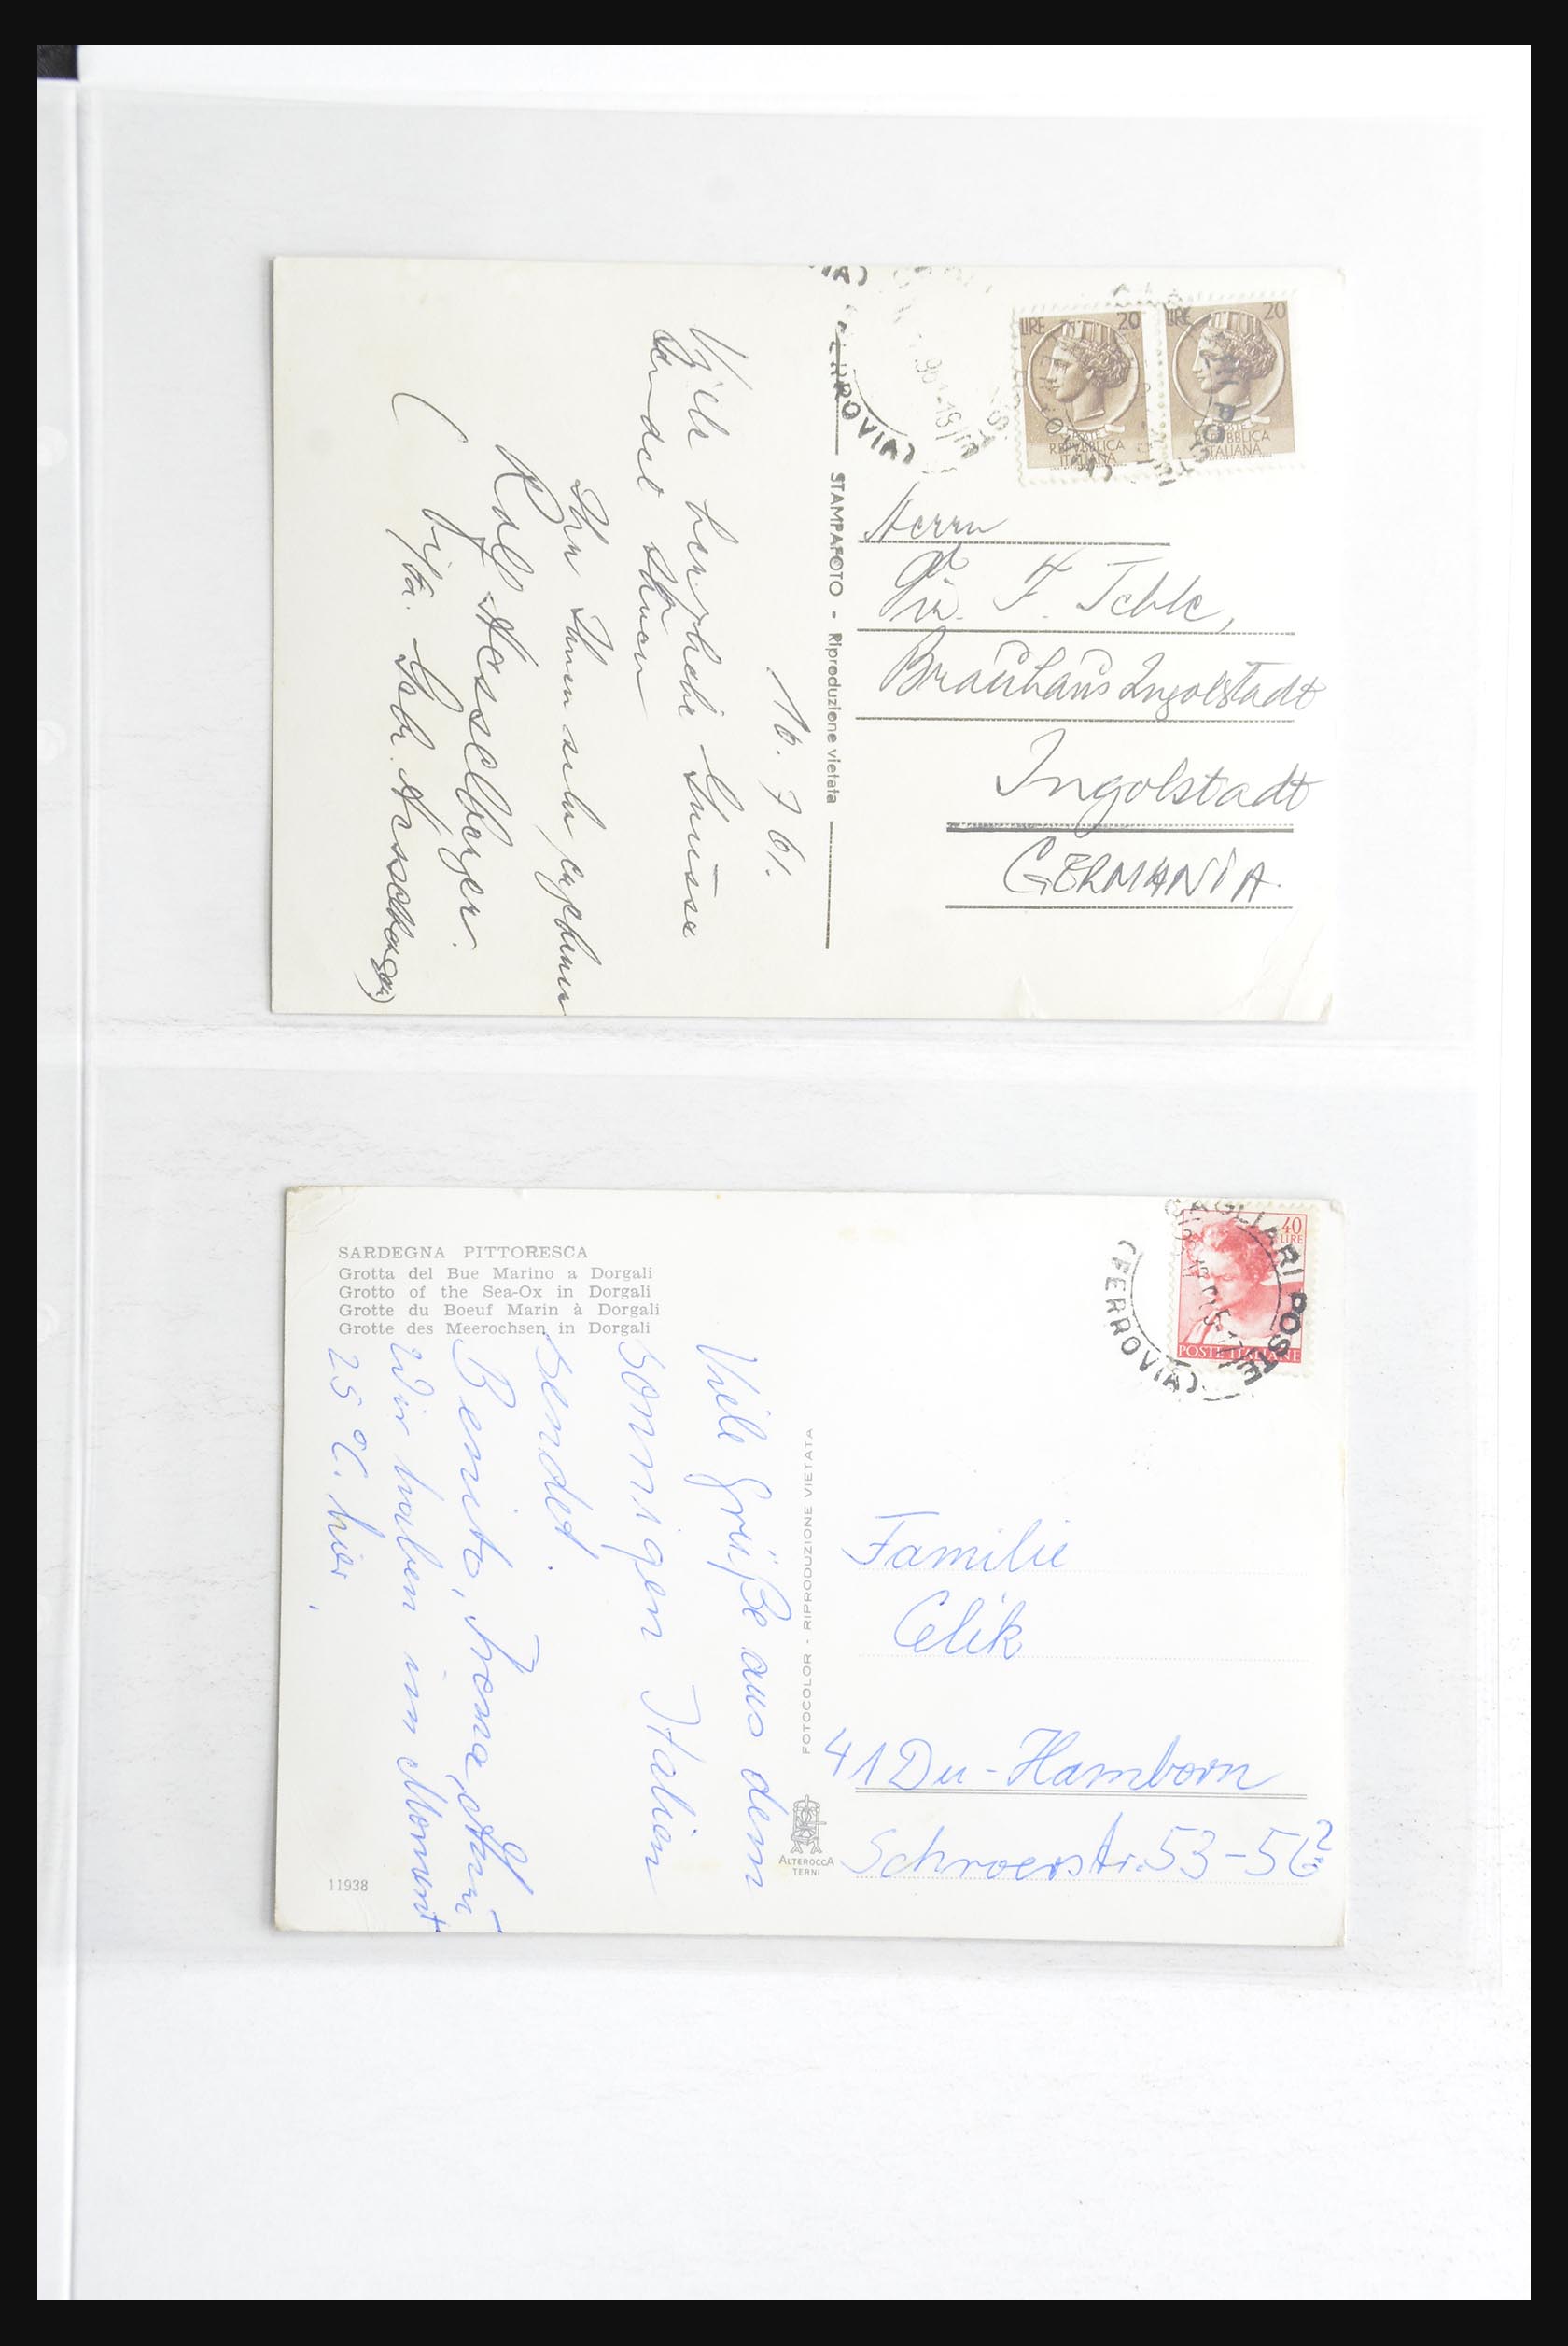 LIRE 20
REPUBBLICA
ITALIANA
LIRE 20
REPUBBLICA
ITALIANA
FERROVIA)
STAMPAFOTO - Riproduzione vietata
16. 7 61.
herzliche Grüsse
sendet
Ihr Ihnen sehr ergebener
Rolf Hesselberger.
Herrn
F.
Brauhaus Ingolstadt
Ingolstadt
GERMANIA.
SARDEGNA PITTORESCA
Grotta del Bue Marino a Dorgali
Grotto of the Sea-Ox in Dorgali
Grotte du Boeuf Marin à Dorgali
Grotte des Meerochsen in Dorgali
Viele Grüße aus dem
sonnigen Italien
sendet.
Benito,
Wir haben im Moment
25 °C. hier.
11938
FOTOCOLOR - RIPRODUZIONE VIETATA
ALTEROCCA
TERNI
40
LIRE
POSTE ITALIANE
CAGLIARI POSTE
(FERROVIA)
Familie
Celik
41 Du-Hamborn
Schroerstr. 53-56?